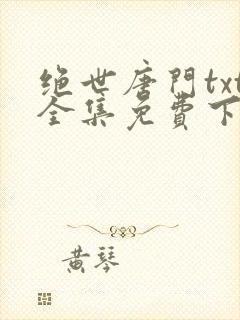 绝世唐門txt
全集免費下
黄琴